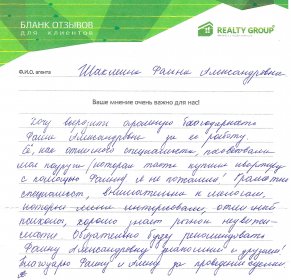 БЛАНК ОТЗЫВОВ
ДЛЯ КЛИЕНТОВ
REALTY GROUP
Ф.И.О. агента
Шахмина Фаина Александровна
Ваше мнение очень важно для нас!
Хочу выразить огромную благодарность
Фаине Александровне за ее работу.
Её, как отличного специалиста, посоветовала
моя подруга, которая также купила квартиру
с помощью Фаины. Я не пожалела! Грамотный
специалист, внимательна к мелочам,
которые меня интересовали, отличный
психолог, хорошо знает рынок недвижи-
мости. Обязательно буду рекомендовать
Фаину Александровну знакомым и друзьям!
Благодарю Фаину и за проведение сделки